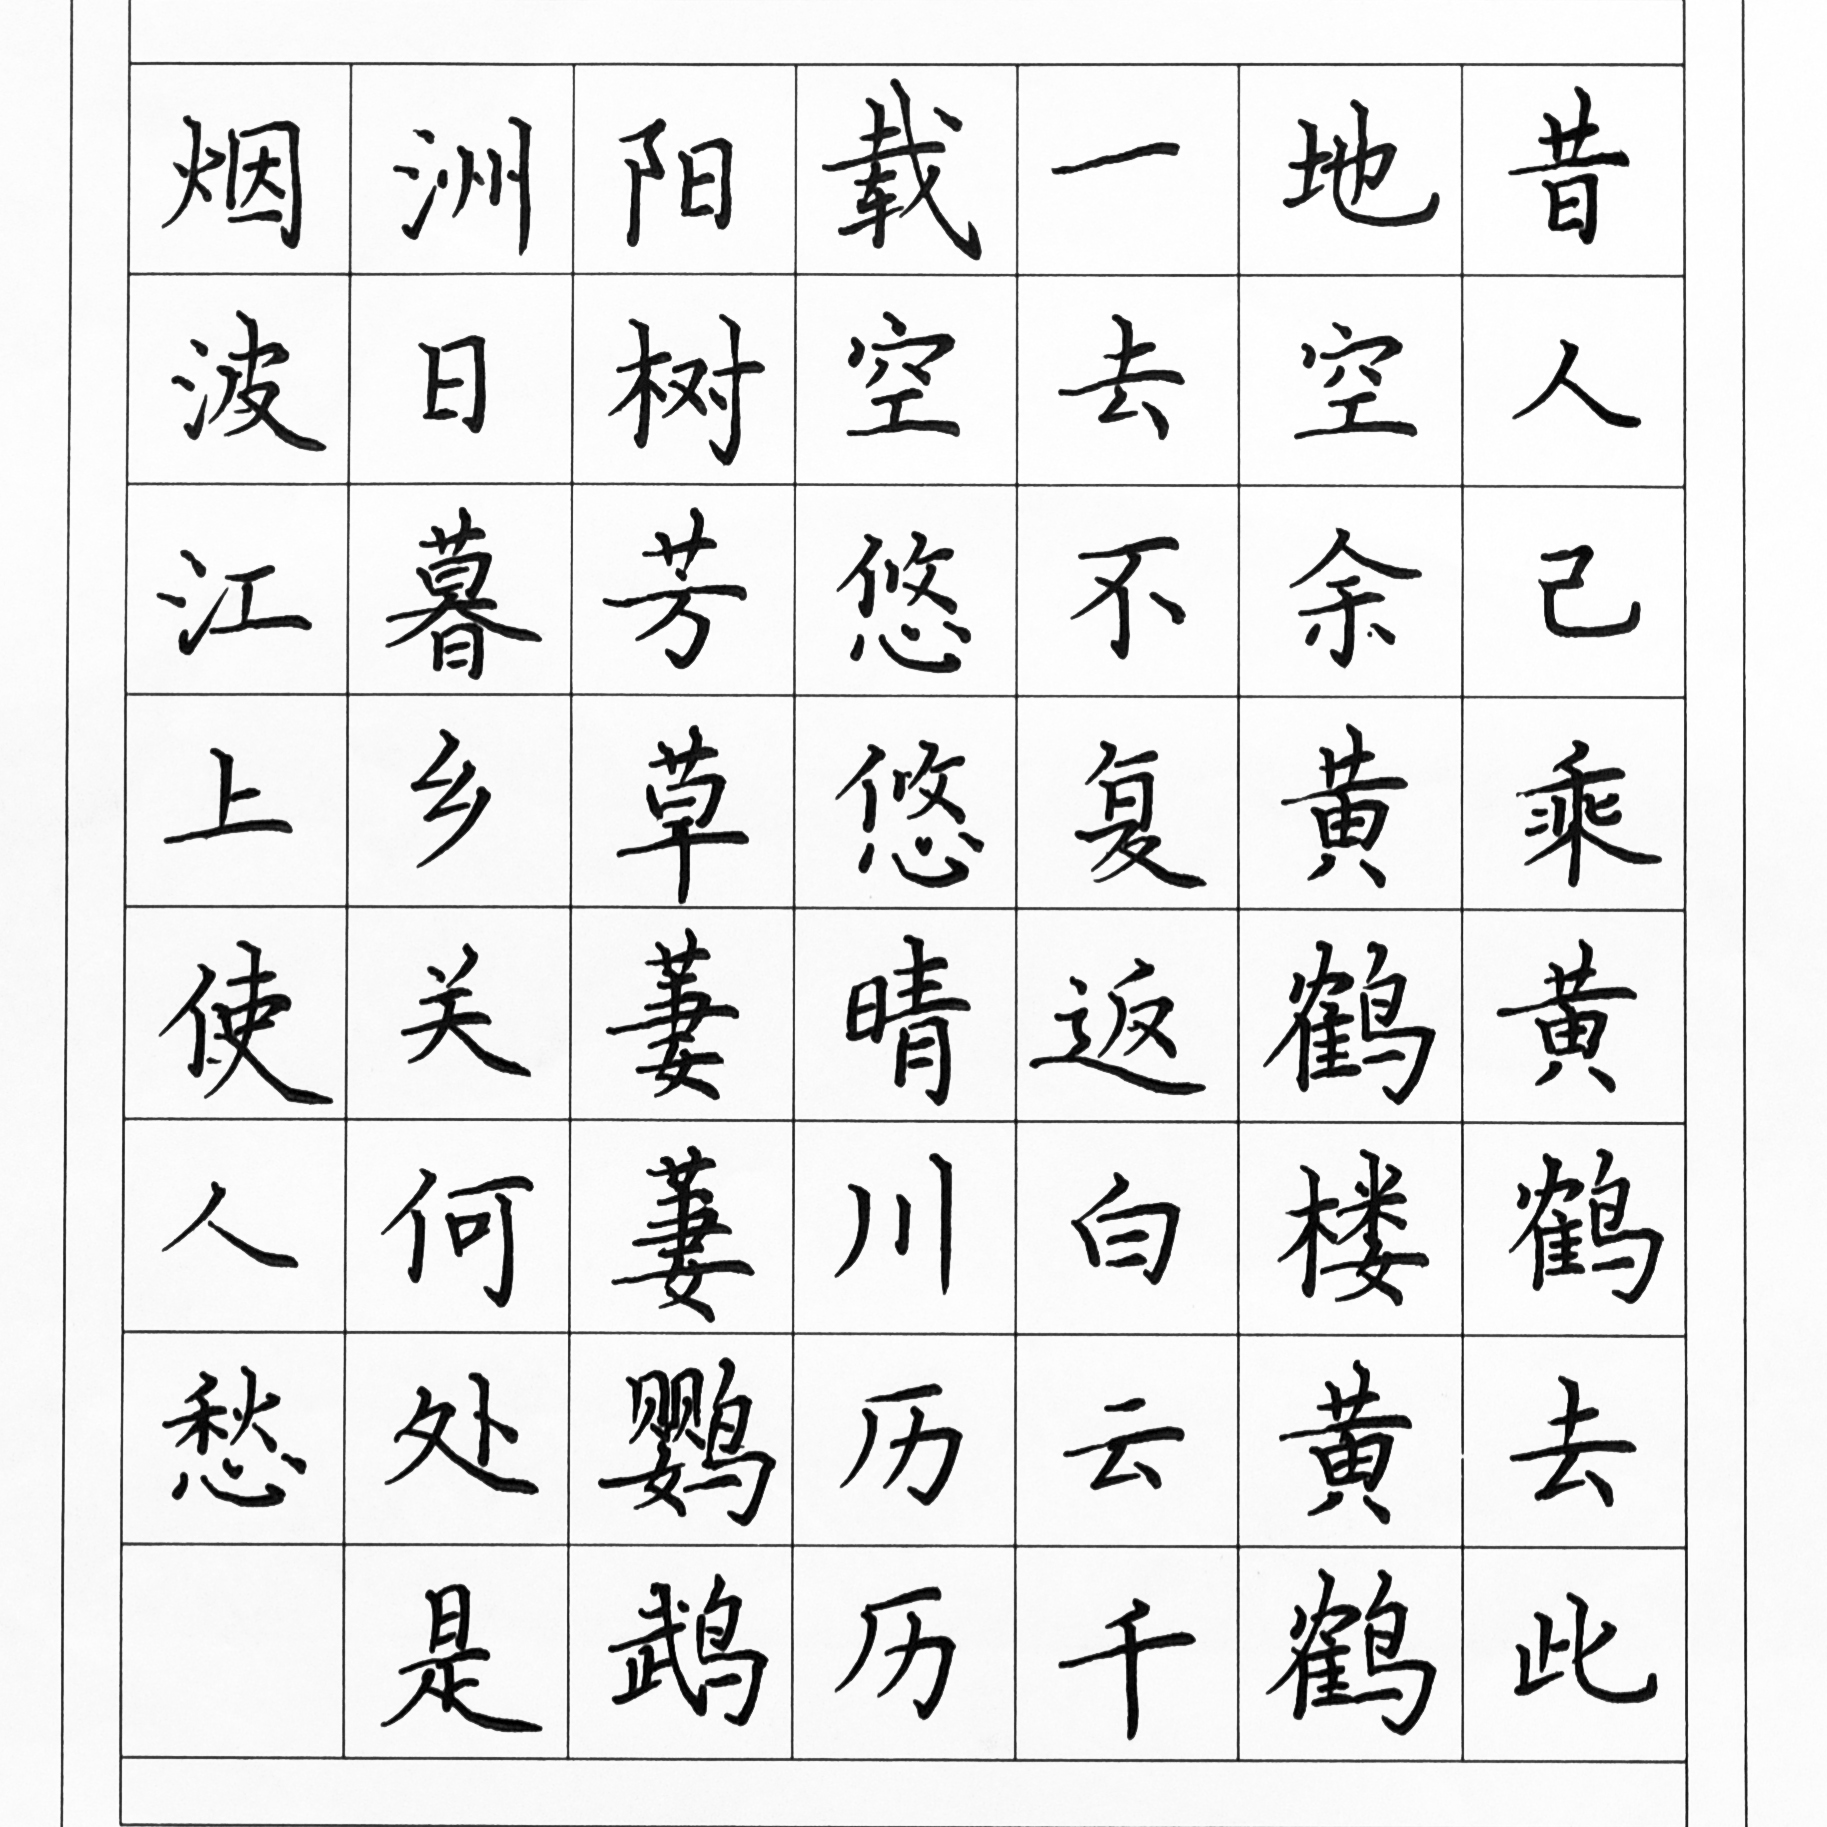 昔人己乘黄鹤去此
地空余黄鹤楼黄鹤
一去不复返白云千
载空悠悠晴川历历
阳树芳草萋萋鹦鹉
洲日暮乡关何处是
烟波江上使人愁